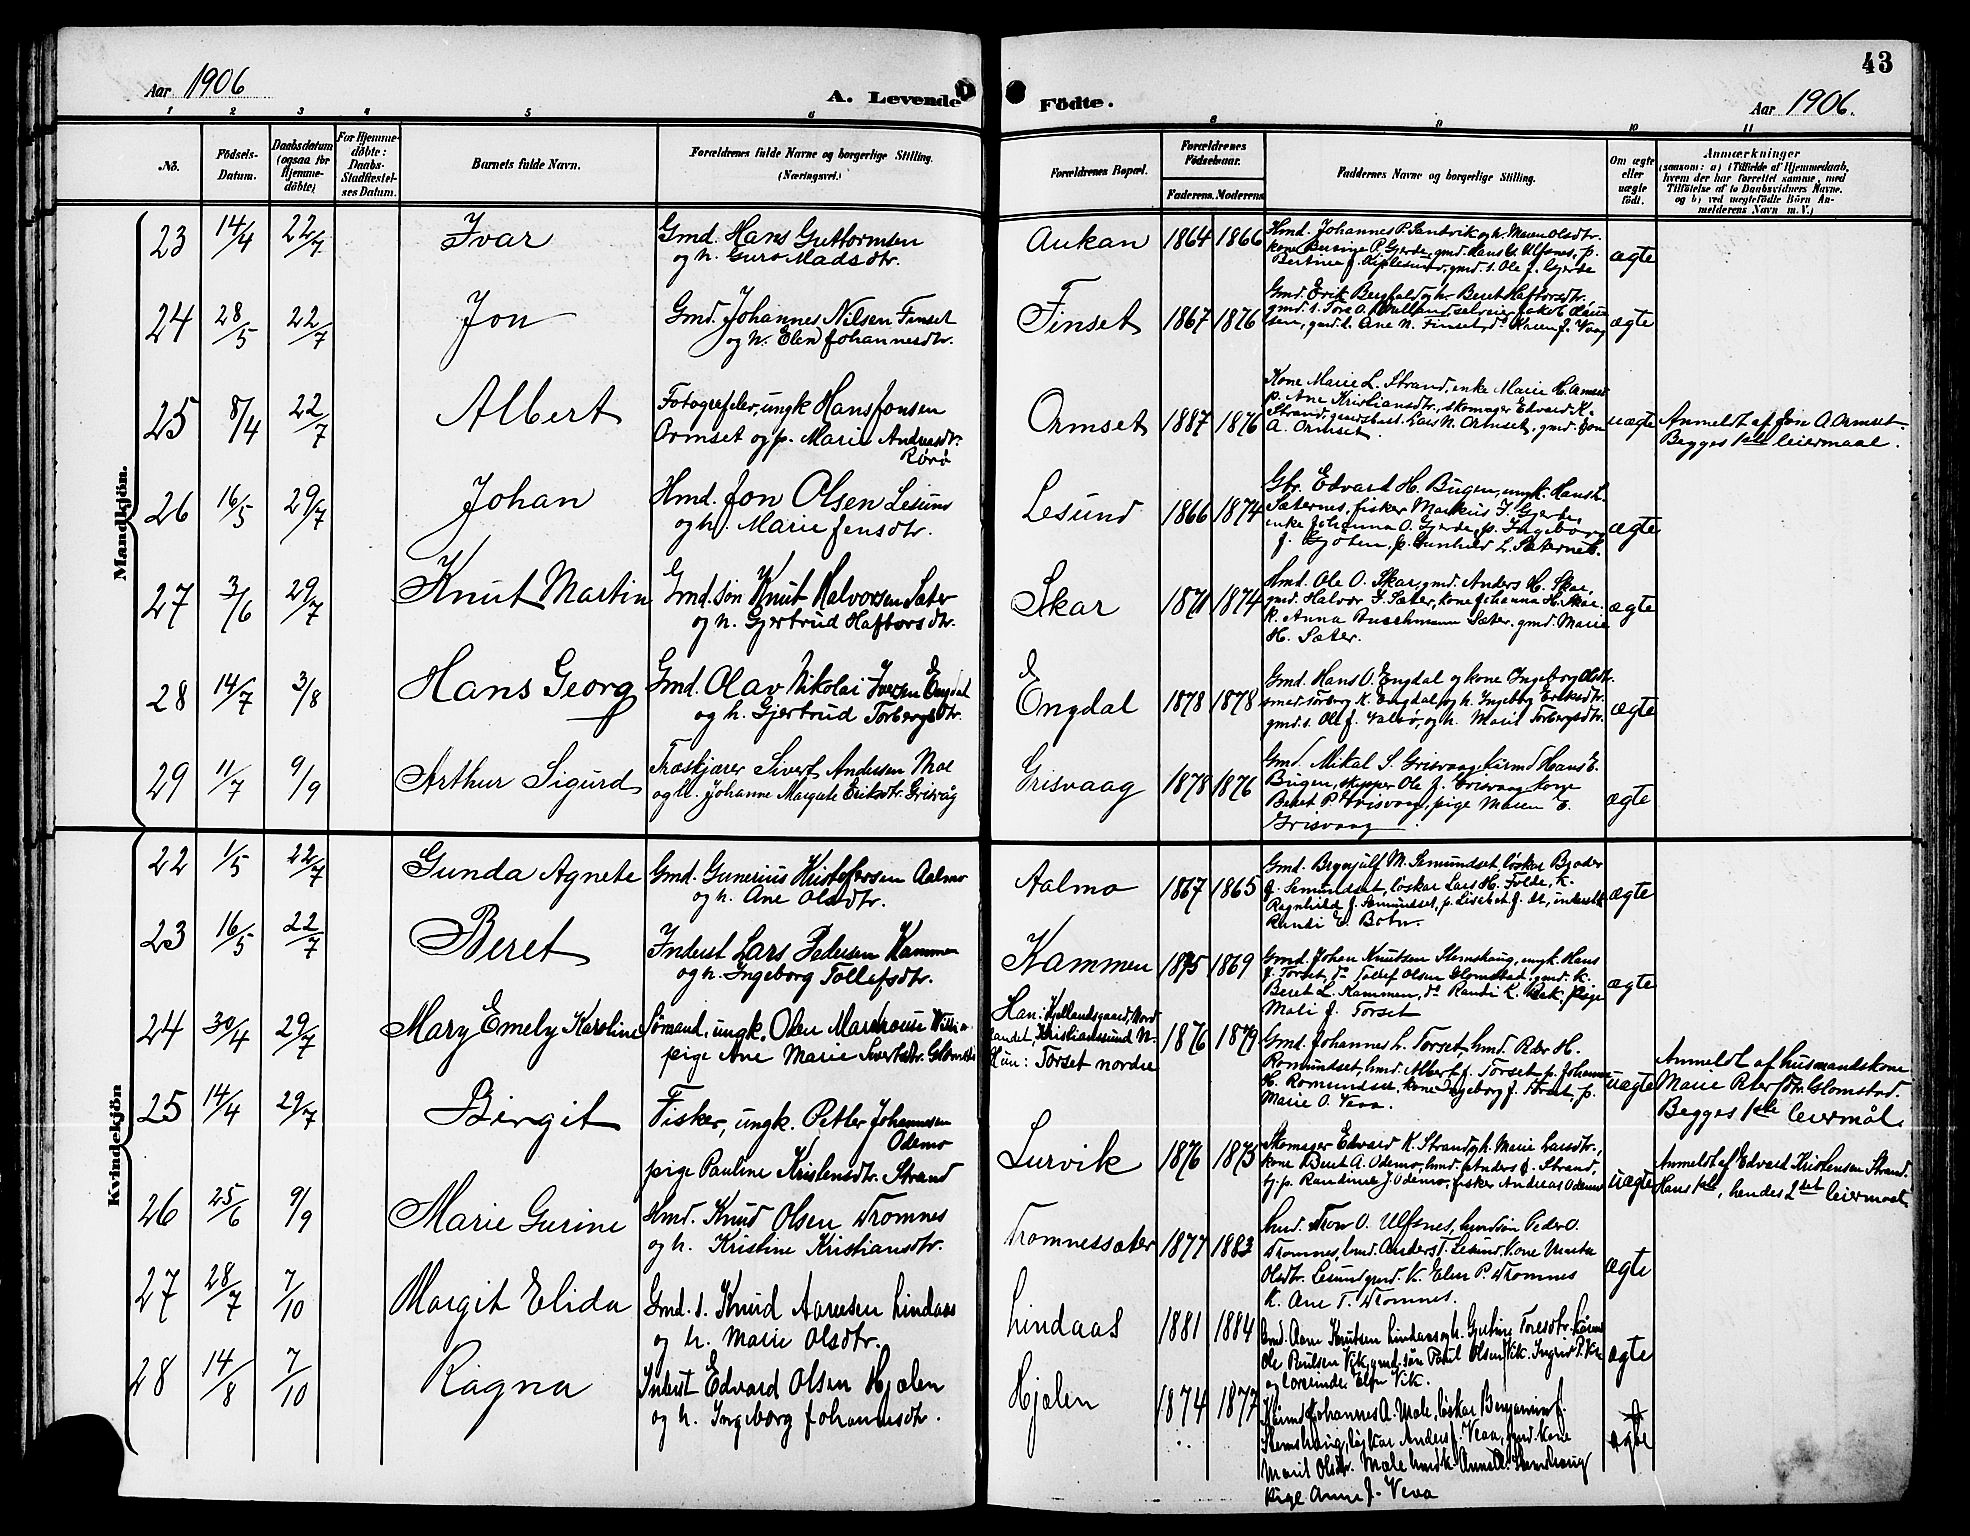 Aar 1906
A. Levende Födte.
43
Aar 1906.
1 2 3 4 5 6 8 9 10 11
No.
Födsels-Datum.
Daabsdatum (ogsaa for Hjemme-döbte)
For Hjemme-döbte: Daabs-Stadfæstel-ses Datum.
Barnets fulde Navn.
Forældrenes fulde Navne og borgerlige Stilling.
(Næringsvei.)
Forældrenes Bopæl.
Forældrenes Födselsaar.
Faderens. Moderens.
Faddernes Navne og borgerlige Stilling.
Om ægte eller uægte födt.
Anmærkninger
(saasom: a) i Tilfælde af Hjemmedaab,
hvem der har forrettet samme, med
Tilföielse af to Daabsvidners Navne.
og b) ved uægtefödte Börn An-
melderens Navn m. V.)
Mandkjön.
23 14/4 22/7 Ivar
Gmd. Hans Guttormsen
og h. Guro Madsdtr.
Aukan 1864 1866
Hmd. Johannes P. Sandvik og h. Maren Olsdtr.
ægte
24 28/5 22/7 Jon
Gmd. Johannes Nilsen Finset
og h. Elen Johannesdtr.
Finset 1867 1876
gmd. s. Ane N. Finset,
ægte
25 8/4 22/7 Albert
ungk Hans Jonsen
Ormset og p. Marie Andreasdtr.
Rörö
Ormset 1887 1876
Kone Marie L. Strand, enke Marie H. Ormset
p. Ane Kristiansdtr., skomager Edvard K.
Strand, Lars N. Ormset, gmd. Jon
A. Ormset.
uægte
Anmeldt af Jon A. Ormset.
Begges 1ste leiermaal.
26 16/5 29/7 Johan
Hmd. Jon Olsen Lesund
og h. Marie Jensdtr.
Lesund 1866 1874
Gbr. Edvard H. Bugen, ungk. Hans L.
Sæternes, fisker Markus J. Gjerde,
enke Johanna O. Gjerde, p. Ingeborg
J. Gjöten, p. Gunhild L. Sæternes.
ægte
27 3/6 29/7 Knut Martin
Gmd. sön Knut Halvorsen Sæter
og h. Gjertrud Haftorsdtr.
Skar 1871 1874
Hmd. Ole O. Skar, gmd. Anders H. Skar,
gmd. Halvor J. Sæter, kone Johanna H. Skar.
k. Anna Buschmann Sæter. gmd. Marie
H. Sæter.
ægte
28 14/7 3/8 Hans Georg
Gmd. Olav Nikolai Iversen Engdal
og h. Gjertrud Torbergsdtr.
Engdal 1878 1878
Gmd. Hans O. Engdal og kone Ingeborg Olsdtr.
smed Torberg K. Engdal, og h. Ingebg Eriksdtr.
gmd. s. Ole J. Valsö, og h. Marit Torbergsdtr.
ægte
29 11/7 9/9 Arthur Sigurd
Træskjærer Sivert Andersen Moe
og h. Johanne Margrete Eriksdtr. Grisvåg
Grisvaag 1878 1876
Gmd. Mikal S. Grisvaag, kårmd Hans E.
Bugen, skipper Ole J. Grisvaag kone
Beret P. Grisvaag, pige Maren E.
Grisvaag.
ægte
Kvindekjön
22 1/5 22/7 Gunda Agnete
Gmd. Gunerius Kristofersen Aalmo
og h. Ane Olsdtr.
Aalmo 1867 1865
J. Semundset, löskar Lars H. Folde, k.
Ragnhild J. Semundset, p. Lisabet J.
Randi E. Botn.
ægte
23 16/5 22/7 Beret
Inderst Lars Pedersen Kammen
og h. Ingeborg Tollefsdtr.
Kammen 1875 1869
Gmd. Johan Knutsen Stemshaug, ungk. Hans
J. Torset, do Tollef Olsen Glomstad, gmd. k.
Beret L. Kammen, do Randi K. Bæk, pige
Mali J. Torset
ægte
24 30/4 29/7 Mary Emely Karoline
Sömand, ungk. Olen
pige Ane Marie Sivertsdtr. Glomstad
Han: Kjellandsgaard, Nord
landet, Kristianssund N.
Hun: Torset nordre
1876 1879
Gmd. Johannes L. Torset, hmd. Peder H.
Romundset, hmd. Albert J. Torset p. Johanna
H. Romundset, kone Ingeborg J. Torset, p.
Marie O. Veaa.
uægte
Anmeldt af husmandskone
Marie Pedersdtr. Glomstad.
Begges 1ste leiermål.
25 14/4 29/7 Birgit
Fisker, ungk. Petter Johannesen
Odemo
pige Pauline Kristensdtr. Strand
Lurvik 1876 1875
Skomager Edvard K. Strand og h. Marie Larsdtr.,
kone Beret A. Odemo, hmd. Anders J. Strand,
tj. p. Randine J. Odemo, fisker Andreas Odemo
uægte
Anmeldt af Edvard Kristensen Strand.
Hans 1ste, hendes 2det leiermaal.
26 25/6 9/9 Marie Gurine
Hmd. Knud Olsen Tromnes
og h. Kristine Kristiansdtr.
Tromnessæter 1877 1883
hmd. Tron O. Ulfsnes, hmdsön Peder O.
Tromnes, hmd. Anders T. Lesund, kone Marta
Olsdtr. Lesund gmd. k. Elen P. Tromnes
k. Ane T. Tromnes.
ægte
27 28/7 7/10 Margit Elida
Gmd. s. Knud Aanesen Lindaas
og h. Marie Olsdtr.
Lindaas 1881 1884
Gmd. Aane Knutsen Lindaas og h. Gurine Toresdtr. kårmd
Ole Paulsen Vik, gmd. sön Paul Olsen Vik. Ingrid P. Vik
Elen Vik.
ægte
28 14/8 7/10 Ragna
Inderst Edvard Olsen Hjælen
og h. Ingeborg Johannesdtr.
Hjælen 1874 1877
Kårmd Johannes A. Mæle, löskar Benjamin J.
Stemshaug, löskar Anders J. Veaa, gmd. kone
Marit Olsdtr. Mæle hmd k. Anne L. Stemshaug
pige Anne J. Veaa
ægte